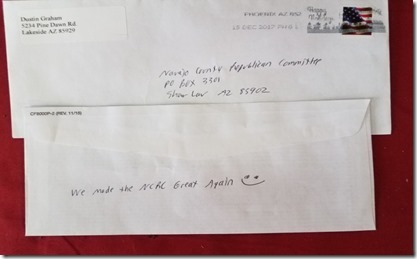 Dustin Graham
5234 Pine Dawn Rd
Lakeside AZ 85929
PHOENIX AZ 852
15 DEC 2017 PM 6 L
Happy
Holidays
Navajo County Republican Committee
PO Box 3301
Show Low AZ 85902
(CF5000P-2 (REV. 11/15)
We made the NCRC Great Again